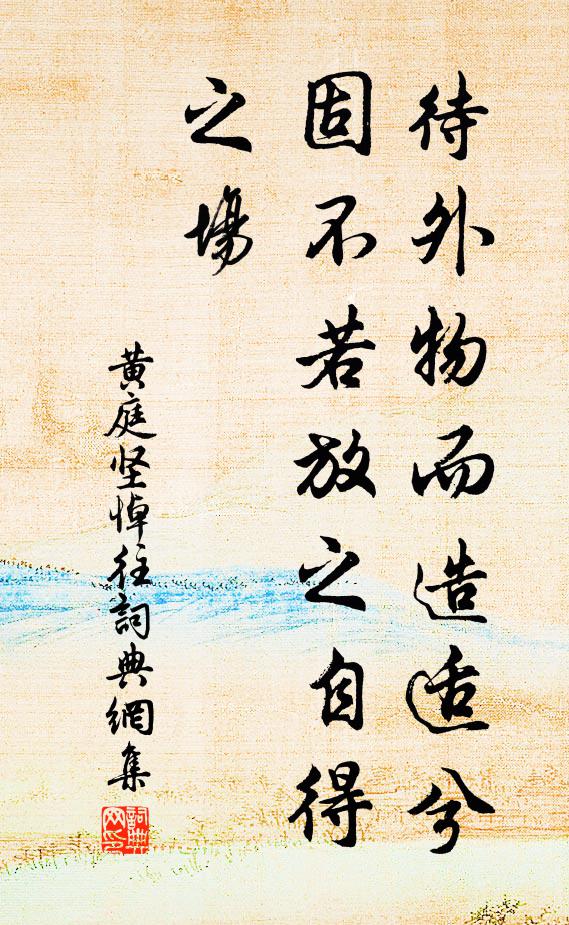 待外物而造适兮
固不若放之自得
之場
黄庭坚悼往詞典網集
詞典網印